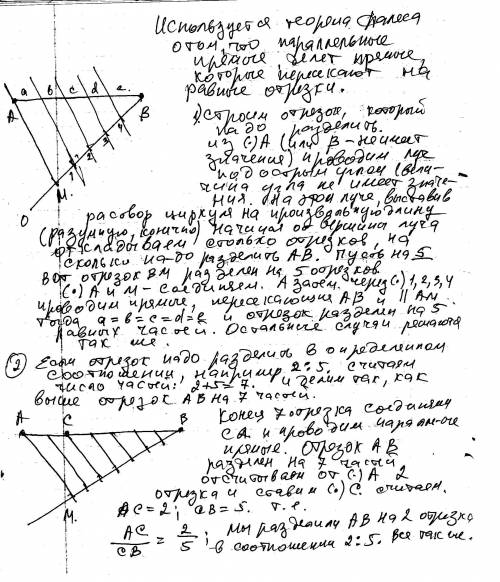 Используется теорема Фалеса
о том, что параллельные
прямые делят прямые,
которые пересекают на
равные отрезки.
a b c d e
A B
1 2 3 4
M
O
1) Строим отрезок, который
надо разделить.
из (·) A (или B - не имеет
значение) проводим луч
под острым углом (вели-
чина угла не имеет значе-
ния. На этом луче, выставив
раствор циркуля на произвольную длину
(разумную, конечно) начиная от вершины луча
откладываем столько отрезков, на
сколько надо разделить AB. Пусть на 5
Вот отрезок BM разделен на 5 отрезков
(·) A и M - соединяем. А затем через (·) 1, 2, 3, 4
проводим прямые, пересекающие AB и || AM.
Тогда a = b = c = d = e и отрезок разделен на 5
равных частей. Остальные случаи решаются
так же.
2) Если отрезок надо разделить в определенном
соотношении, например 2:5. считаем
число частей: 2+5=7. и делим так, как
выше отрезок AB на 7 частей.
A C B
M
Конец 7 отрезка соединяем
с A и проводим параллель-ные
прямые. Отрезок AB
разделен на 7 частей
отсчитываем от (·) A 2
отрезка и ставим (·) C. считаем.
AC = 2; CB = 5. т.е.
AC/CB = 2/5; мы разделили AB на 2 отрезка
в соотношении 2:5. Все так же.